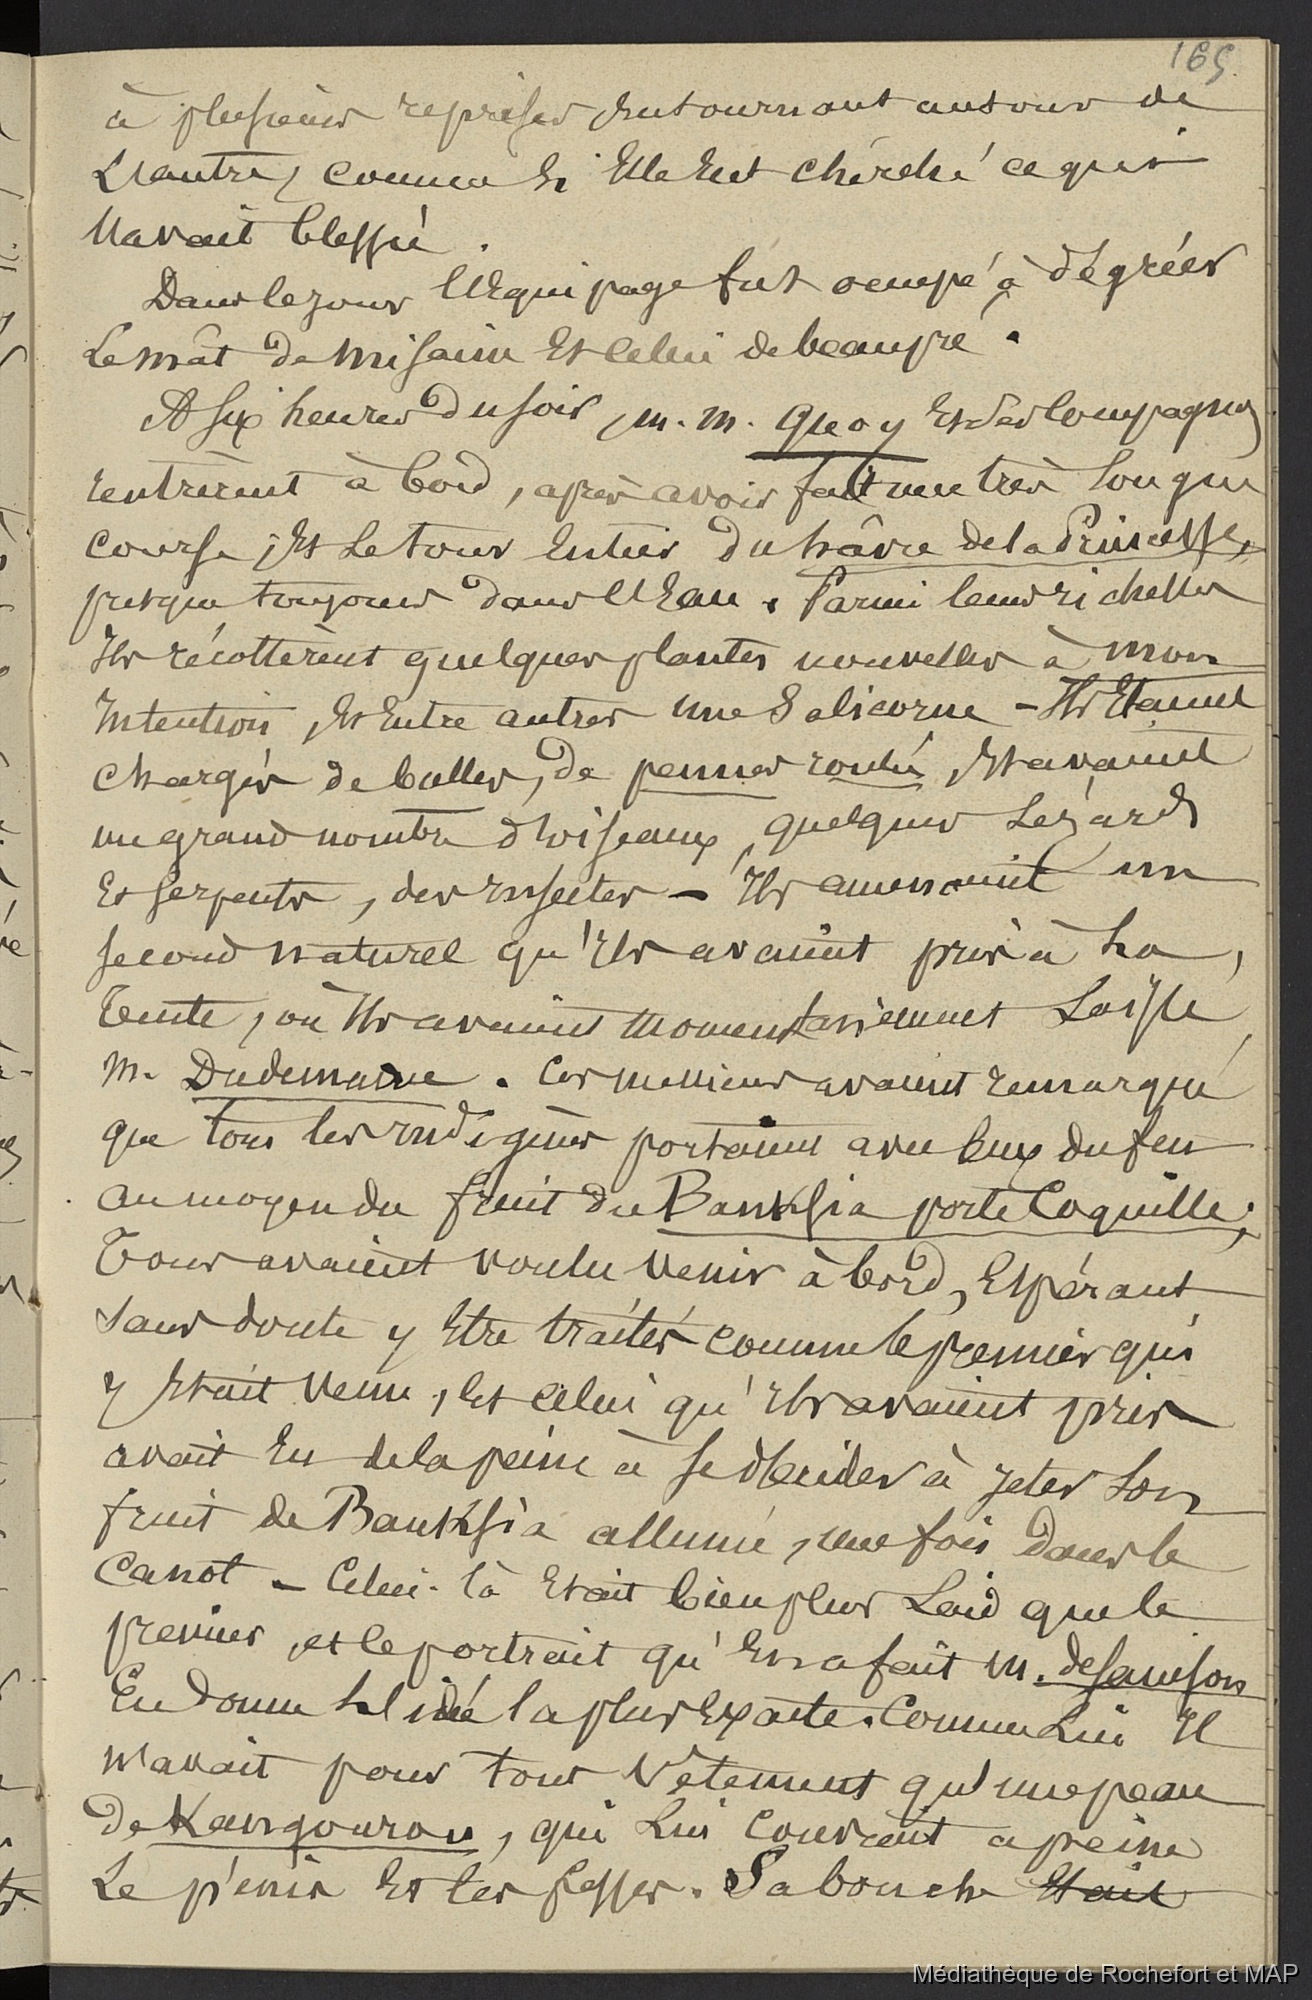 165.
à plusieurs reprises en tournant autour de
L'antre, comme si Elle eut cherché ce qui
l'avait blessée.
Dans le jour l'Equipage fut ocupé à dégréer
Le mât de misaine Et celui de beaupré.
A six heures du soir, m. m. Quoy Et ses Compagnons
rentrèrent à bord, après avoir fait une très longue
course, Et Le tour Entier du hâvre de la Princesse,
presque toujours dans l'Eau. Parmi leurs richesses
Ils récoltèrent quelques plantes nouvelles à mon
Intention, Et Entre autres une Salicorne - Ils Etaient
chargés de bulles, de pennes roulés, Et avaient
un grand nombre d'oiseaux, quelques Lézards
Et serpents, des Insectes - Ils amenaient un
second naturel qu'Ils avaient pris à La,
Tente, où Ils avaient momentanément Laissé
M. Dudemaine. Ces messieurs avaient remarqué
que tous les Indigènes portaient avec Eux du feu
au moyen du fruit du Banksia porte Coquille;
Tous avaient voulu venir à bord, Espérant
sans doute y Etre traités comme le premier qui
y Etait venu, Et celui qu'Ils avaient pris
avait Eu de la peine à se décider à jeter son
fruit de Banksia allumé, une fois dans le
canot - Celui-là Etait bien plus Laid que le
premier, et le portrait qu'En a fait M. de Sainson
En donne L'idée la plus Exacte. Comme Lui Il
n'avait pour tout Vêtement qu'une peau
de Kangourou, qui Lui couvrait a peine
Le pénis Et les fesses. Sa bouche Etait
Médiathèque de Rochefort et MAP